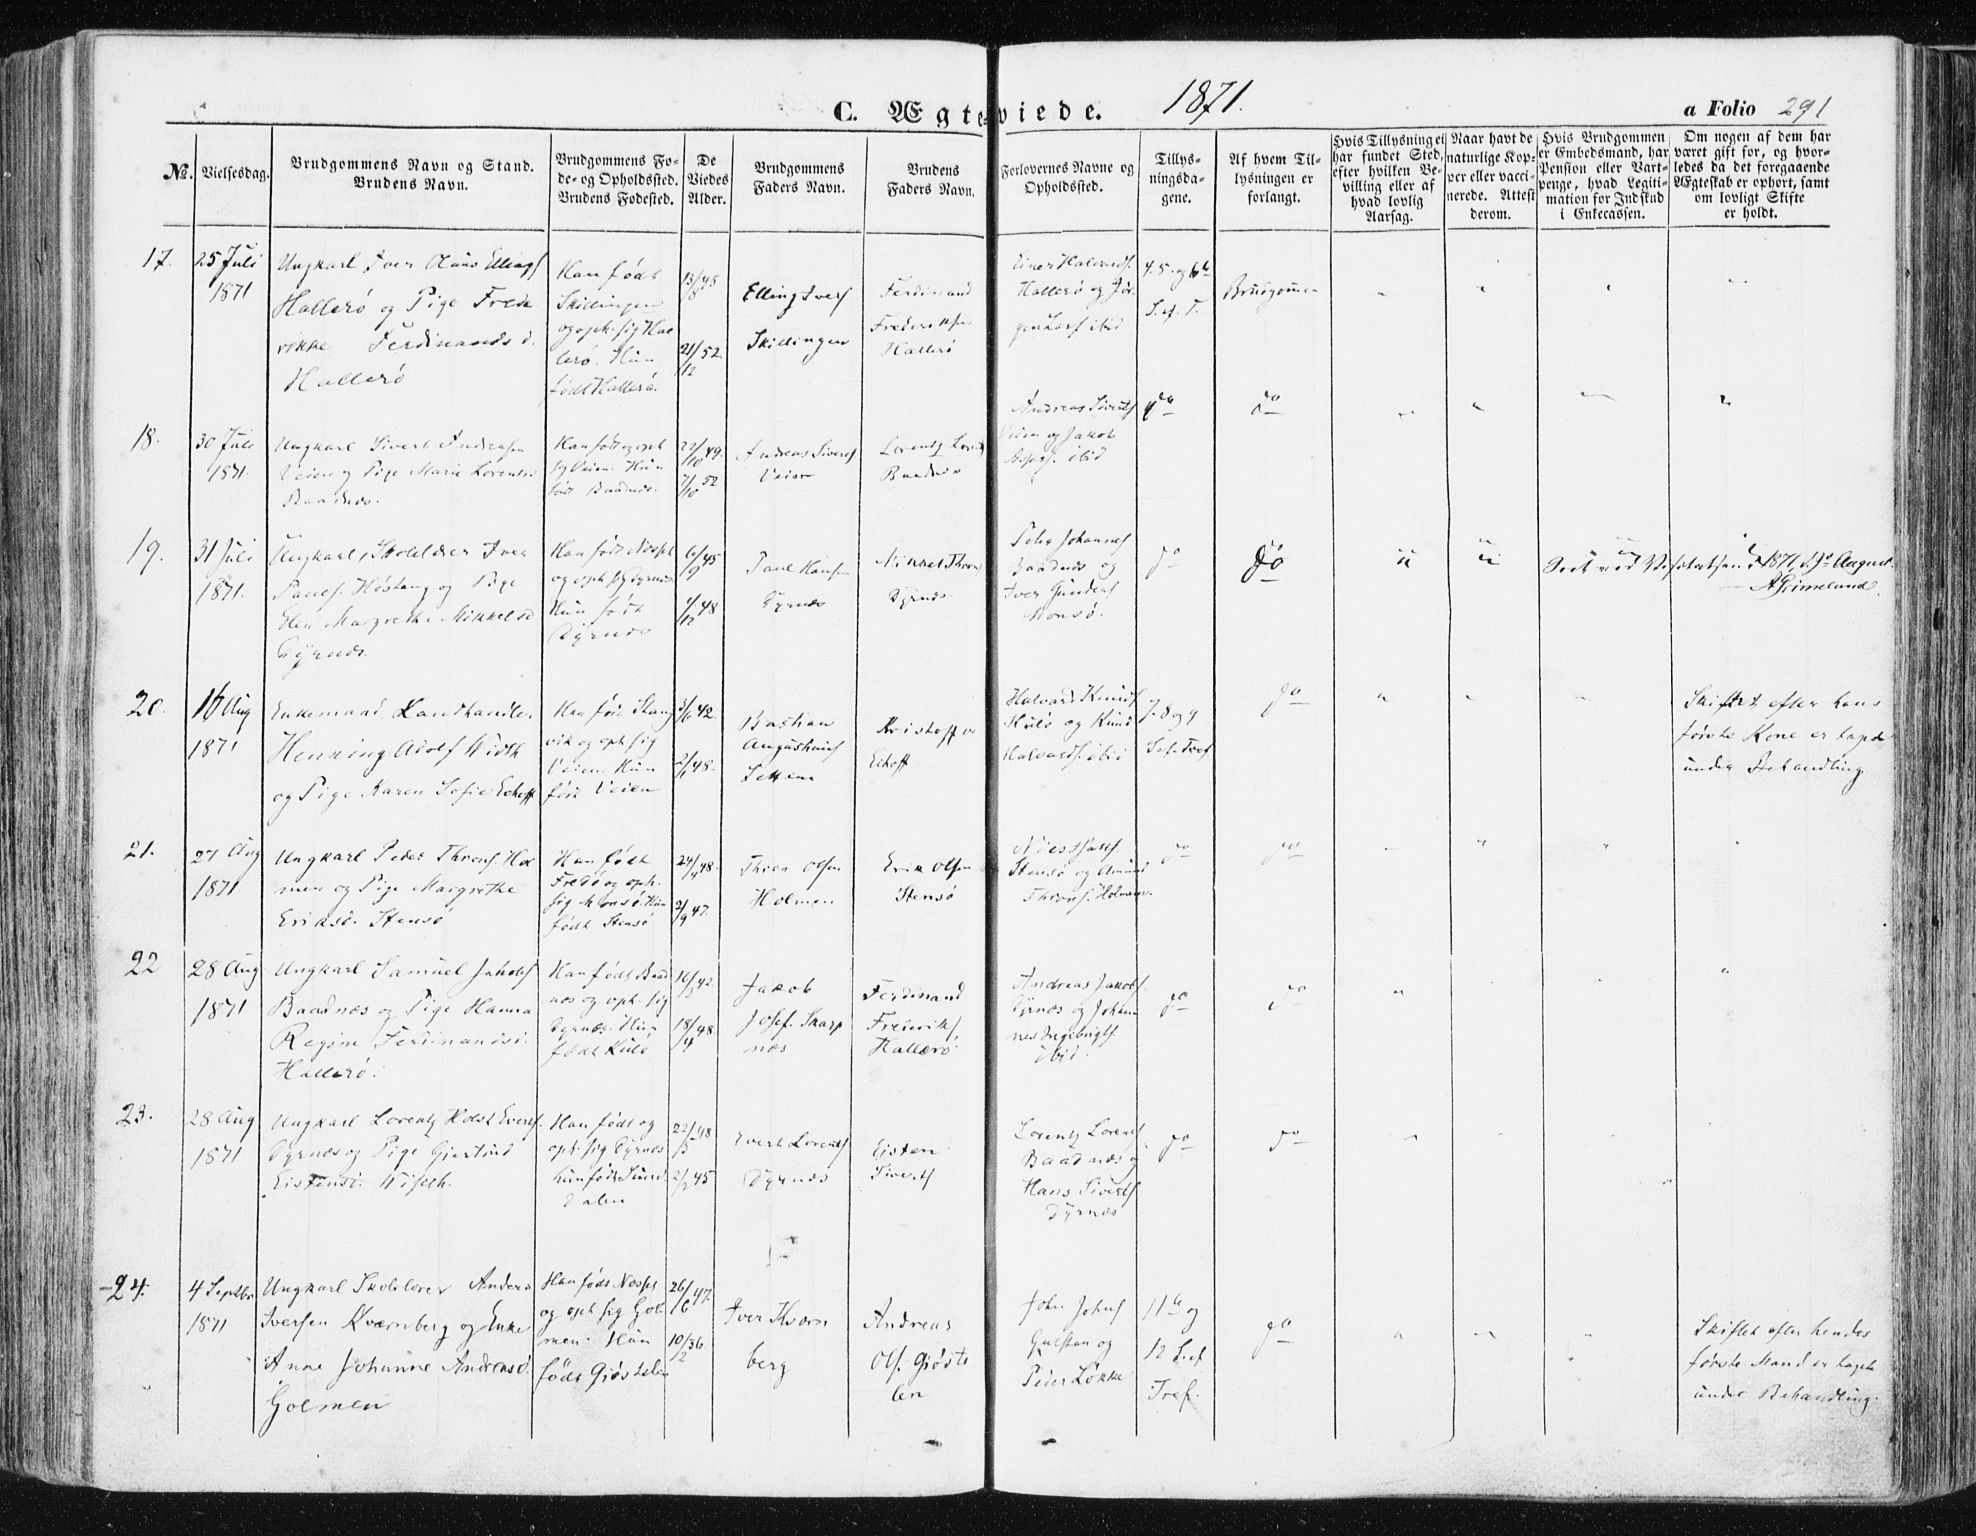 C. Ægteviede. 1871. a Folio 291
№.
Vielsesdag.
Brudgommens Navn og Stand.
Brudens Navn.
Brudgommens Fo-
de- og Opholdssted.
Brudens Fødested.
De
Viedes
Alder.
Brudgommens
Faders Navn.
Brudens
Faders Navn.
Forlovernes Navne og
Opholdssted.
Tillys-
ningsda-
gene.
Af hvem Til-
lysningen er
forlangt.
Hvis Tillysning ei
har fundet Sted,
efter hvilken Be-
villing eller af
hvad lovlig
Aarsag.
Naar havt de
naturlige Kop-
per eller vacci-
nerede. Attest
derom.
Hvis Brudgommen
er Embedsmand, har
Pension eller Vart-
penge, hvad Legiti-
mation for Indskud
i Enkecassen.
Om nogen af dem har
været gift for, og hvor-
ledes da det foregaaende
Ægteskab er ophort, samt
om lovligt Skifte
er holdt.
17.
25 Juli
1871
Ungkarl Iver Olaus Ellings
Hallerø og Pige Frede
rikke Ferdinandsd.
Hallerø
Han født
Skillingen
og oph. sig Hal
lerø. Hun
født Hallerø.
13/8 45
21/12 52.
Elling Ivers
Skillingen
Ferdinand
Frederiksen
Hallerø
Einer Halvords.
Hallerø og Jør
gen Lars ibid
4. 5. og 6te
S. ef. T.
Brudgommen
18.
30 Juli
1871.
Ungkarl Sivert Andreasen
Veien og Pige Marie Lorentsd
Baadnes.
Han født og oph
sig Veien. Hun
født Baadnes.
22/10 49.
7/10 52
Andreas Siverts
Veien
Lorentz Lorents
Baadnes
Andreas Siverts
Veien og Jakob
ibid
do
do
19.
31 Juli
1871.
Ungkarl, Skolelærer Iver
Pauls. Høstang og Pige
Elen Margrethe Mikkelsd
Dyrnes.
Han født Nesset
og oph. sig Dyrnes
Hun født
Dyrnes
6/9 45
4/12 48
Paul Hansen
Dyrnes
Mikkel Thron
Dyrnes.
Peter Johannes
Baadnes og
Iver Gunders
Monsø.
do
do
Seet ved Visitatsen d. 1871, d. August.
AGrimelund.
20.
16 Aug
1871
Enkemand Landhandler
Henning Adolf Width
og Pige Karen Sofie Eckhoff
Han født Stang
vik og oph. sig
Veien. Hun
født Veien
3/6 42.
2/1 48.
Bastian
Augustinus
Settem
Kristoffer
Eckhoff.
Halvard Knuds
Kulø og Knud
Halvards. ibid
7. 8 og 9
S. ef. Tref
do
Skiftet efter hans
første Kone er tagen
under Behandling
21.
27 Aug
1871
Ungkarl Peder Throns. Hol
men og Pige Margrethe
Eriksd. Stensø
Han født
Fredø og oph.
sig Monsø. Hun
født Stensø
24/4 48.
2/9 47.
Thron Olsen
Holmen
Erik Olsen
Stensø
Stensø og Amund
Throns. Holmen.
do
do
22
28 Aug
1871
Ungkarl Samuel Jakobs
Baadnæs og Pige Hanna
Regine Ferdinandsd.
Hallerø.
Han født Baad
nes og oph. sig
Dyrnes. Hun
født Kulø
16/2 42.
18/4 48.
Jakob
Josef. Skarp
næs
Ferdinand
Frederiks,
Hallerø.
Andreas Jakobs.
Dyrnes og Johan
nes Ingebrigts
ibid.
do
do
23.
28 Aug
1871
Ungkarl Lorentz Holst Everts.
Dyrnes og Pige Giertrud
Eistensd. Wiseth.
Han født og
oph. sig Dyrnes
hun født Sund
dalen
22/5 48
2/2 45
Evert Lorents
Dyrnes
Eisten
Siverts
Lorentz Lorents
Baadnæs og
Hans Siverts
Dyrnes
do
do
24.
4 Septbr
1871
Ungkarl Skolelærer Anders
Iversen Kværnberg og Enke
Anne Johanne Andreasd.
Golmen
Han født Nesset
og oph. sig Gol
men. Hun
født Giøstelen
26/6 47.
10/2 36
Iver Kværn
berg
Andreas
Ols. Giøste
len
John Johns
Gulstan og
Peder Løkke
11te og
12 S. ef
Tref.
do
Skiftet efter hendes
første Mand er tagen
under Behandling.